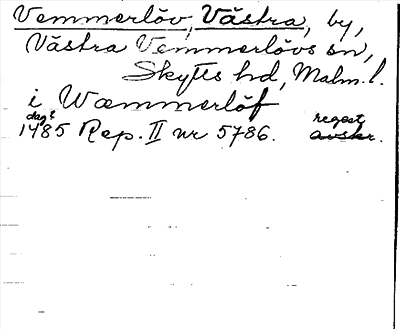 Vemmerlöv, Västra, by,
Västra Vemmerlövs sn,
Skytts hd, Malm. l.
i Wæmmerlöf
dagt regest
1485 Rep. II nr 5786. avskr.